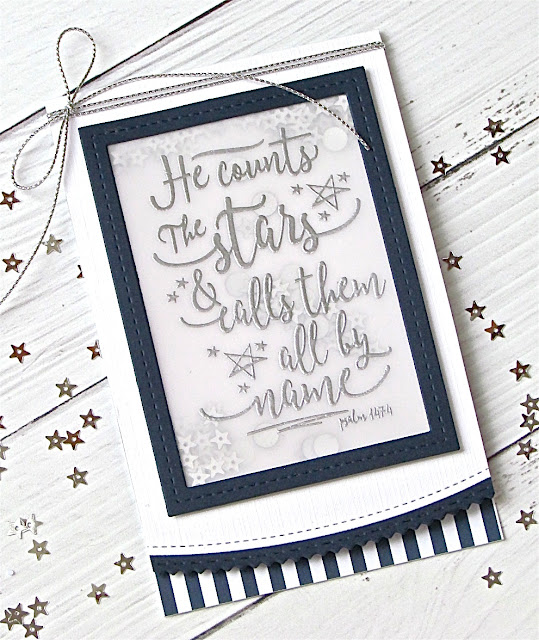 He counts
The stars
& calls them
all by
name
psalm 147:4